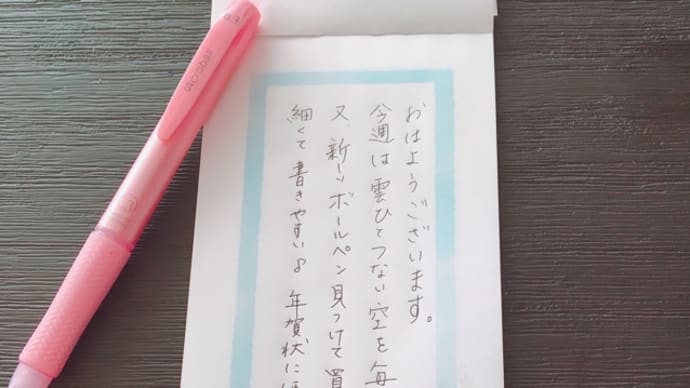 おはようございます。
今週は雲ひとつない空を毎
又、新しいボールペン見つけて買
細くて書きやすい♪ 年賀状に
acroball